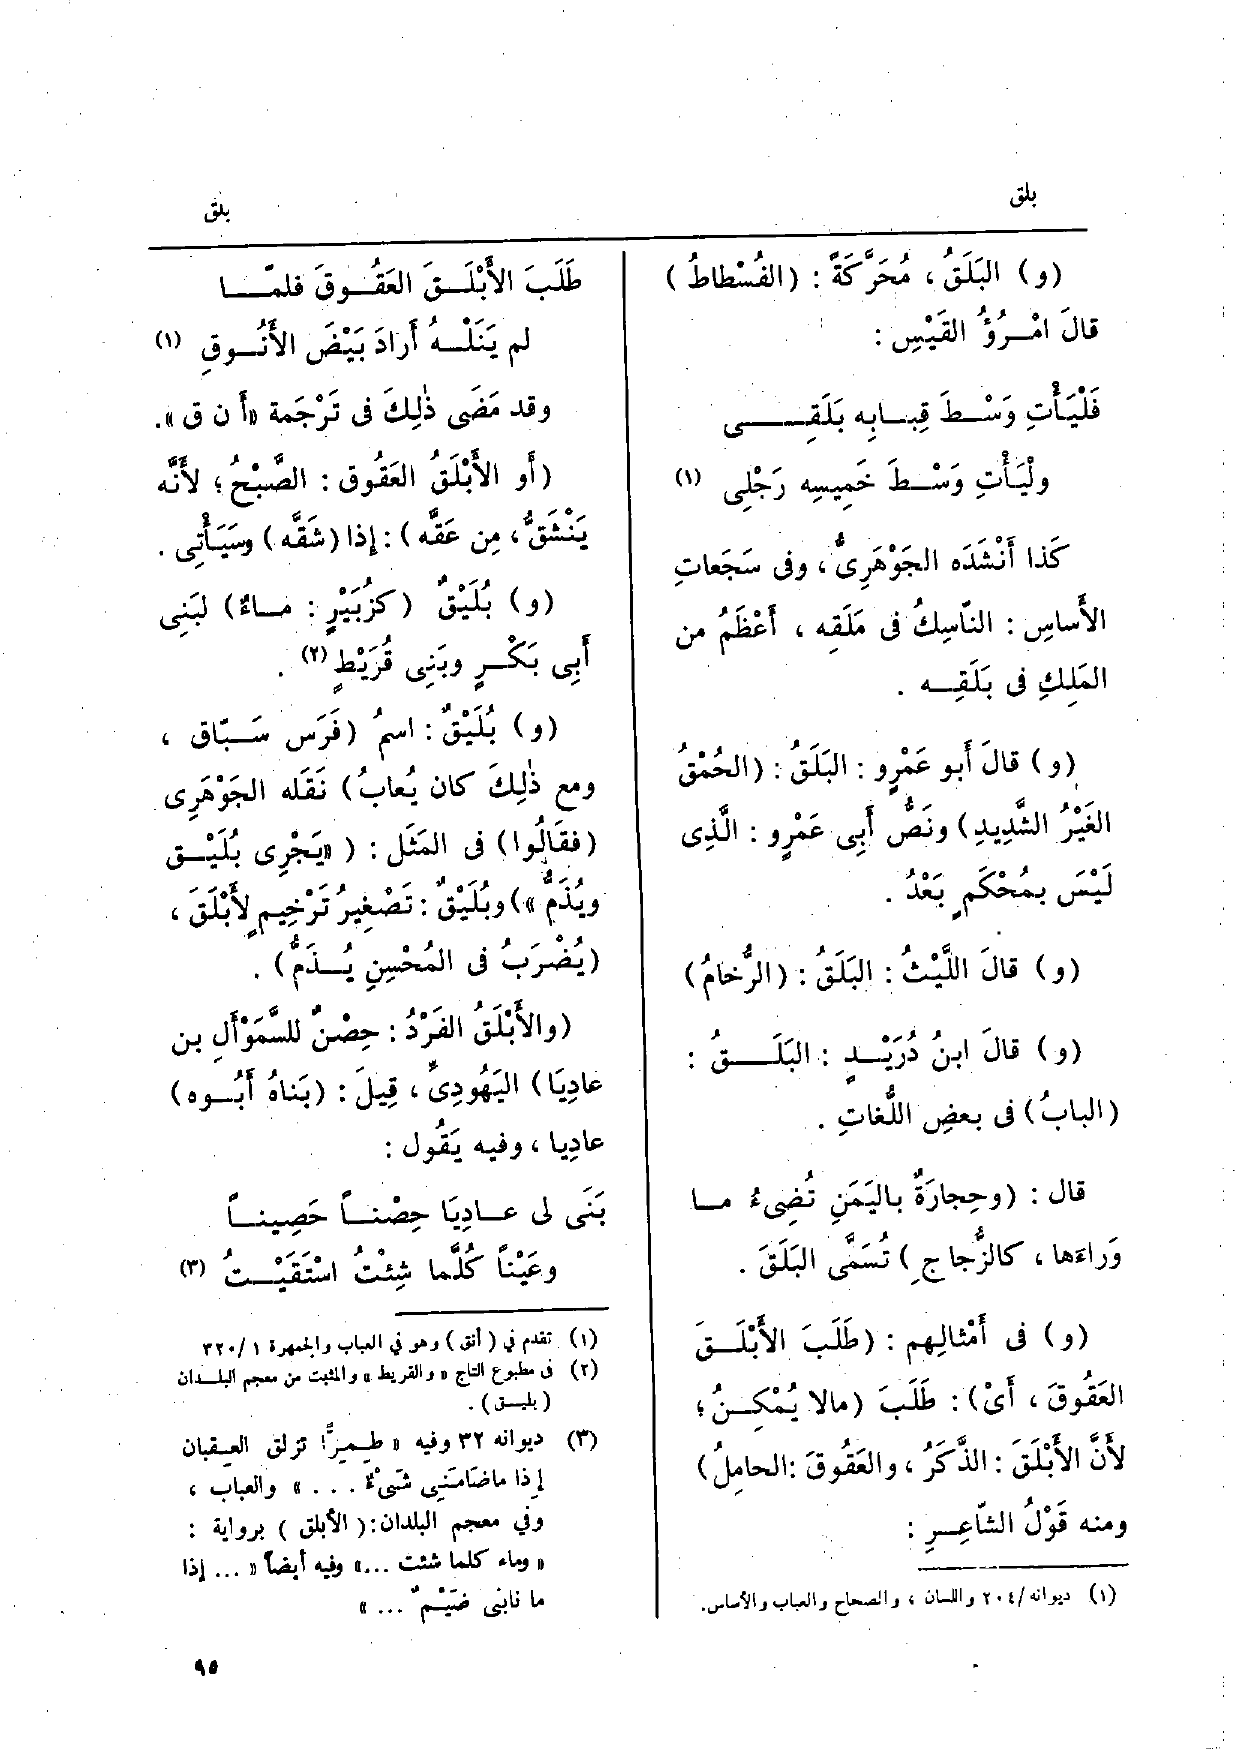 بلق
بلق
(و) البَلَقُ ، مُحَرَّكَةً : (الفُسْطاطُ)
قالَ امْرُؤُ القَيْسِ :
فَلْيَأْتِ وَسْطَ قِبابِه بَلَقِى
ولْيَأْتِ وَسْطَ خَمِيسِه رَجْلِى (١)
كَذا أَنْشَدَه الجَوْهَرِىُّ ، وفى سَجَعاتِ
الأَساسِ : النّاسِكُ فى مَلَقِه ، أَعْظَمُ من
المَلِكِ فى بَلَقِه .
(و) قالَ أبو عَمْرٍو : البَلَقُ : (الحُمْقُ
الغَيْرُ الشَّدِيدِ) ونَصُّ أَبِى عَمْرٍو : الَّذِى
لَيْسَ بمُحْكَمٍ بَعْدُ .
(و) قالَ اللَّيْثُ : البَلَقُ : (الرُّخامُ)
(و) قالَ ابنُ دُرَيْدٍ : البَلَقُ :
(البابُ) فى بعضِ اللُّغاتِ .
قال : (وحِجارَةٌ باليَمَنِ تُضِىءُ ما
وَراءَها ، كالزُّجاجِ) تُسَمَّى البَلَقَ .
(و) فى أَمْثالِهم : (طَلَبَ الأَبْلَقَ
العَقُوقَ ، أَىْ) : طَلَبَ (مالا يُمْكِنُ ؛
لأَنَّ الأَبْلَقَ : الذَّكَرُ ، والعَقُوقَ : الحامِلُ)
ومنه قَوْلُ الشّاعِرِ :
(١) ديوانه/٢٠٤ واللسان ، والصحاح والعباب والأساس.
طَلَبَ الأَبْلَقَ العَقُوقَ فلمّا
لم يَنَلْهُ أَرادَ بَيْضَ الأَنُوقِ (١)
وقد مَضَى ذٰلِكَ فى تَرْجَمة «أ ن ق».
(أَو الأَبْلَقُ العَقُوق : الصُّبْحُ ؛ لأَنَّه
يَنْشَقُّ ، مِن عَقَّه) : إذا (شَقَّه) وسَيَأْتِى .
(و) بُلَيْقٌ (كزُبَيْرٍ : ماءٌ) لبَنِى
أَبِى بَكْرٍ وبَنِى قُرَيْطٍ (٢) .
(و) بُلَيْقٌ : اسمُ (فَرَس سَبّاق ،
ومع ذٰلِكَ كان يُعابُ) نَقَله الجَوْهَرِى
(فقَالُوا) فى المَثَل : ( «يَجْرِى بُلَيْق
ويُذَمُّ ») وبُلَيْقٌ : تَصْغِيرُ تَرْخِيمٍ لأَبْلَقَ ،
(يُضْرَبُ فى المُحْسِنِ يُذَمُّ) .
(والأَبْلَقُ الفَرْدُ : حِصْنٌ للسَّمَوْأَلِ بن
عادِيَا) اليَهُودِىِّ ، قِيلَ : (بَناهُ أَبُوه)
عادِيا ، وفيه يَقُول :
بَنَى لى عادِيَا حِصْناً حَصِيناً
وعَيْناً كُلَّما شِئْتُ اسْتَقَيْتُ (٣)
(١) تقدم في (أنق) وهو في العباب والجمهرة ١/٣٢٠
(٢) فى مطبوع التاج « والقريط » والمثبت من معجم البلدان
(بليق) .
(٣) ديوانه ٣٢ وفيه « طِمِرًّا تزلق العِقبان
إذا ماضَامَنِى شَىْءٌ . . . » والعباب ،
وفي معجم البلدان:(الأبلق ) برواية :
« وماء كلما شئت ...» وفيه أيضاً « ... إذا
ما نابَنِى ضَيْمٌ ... »
٩٥